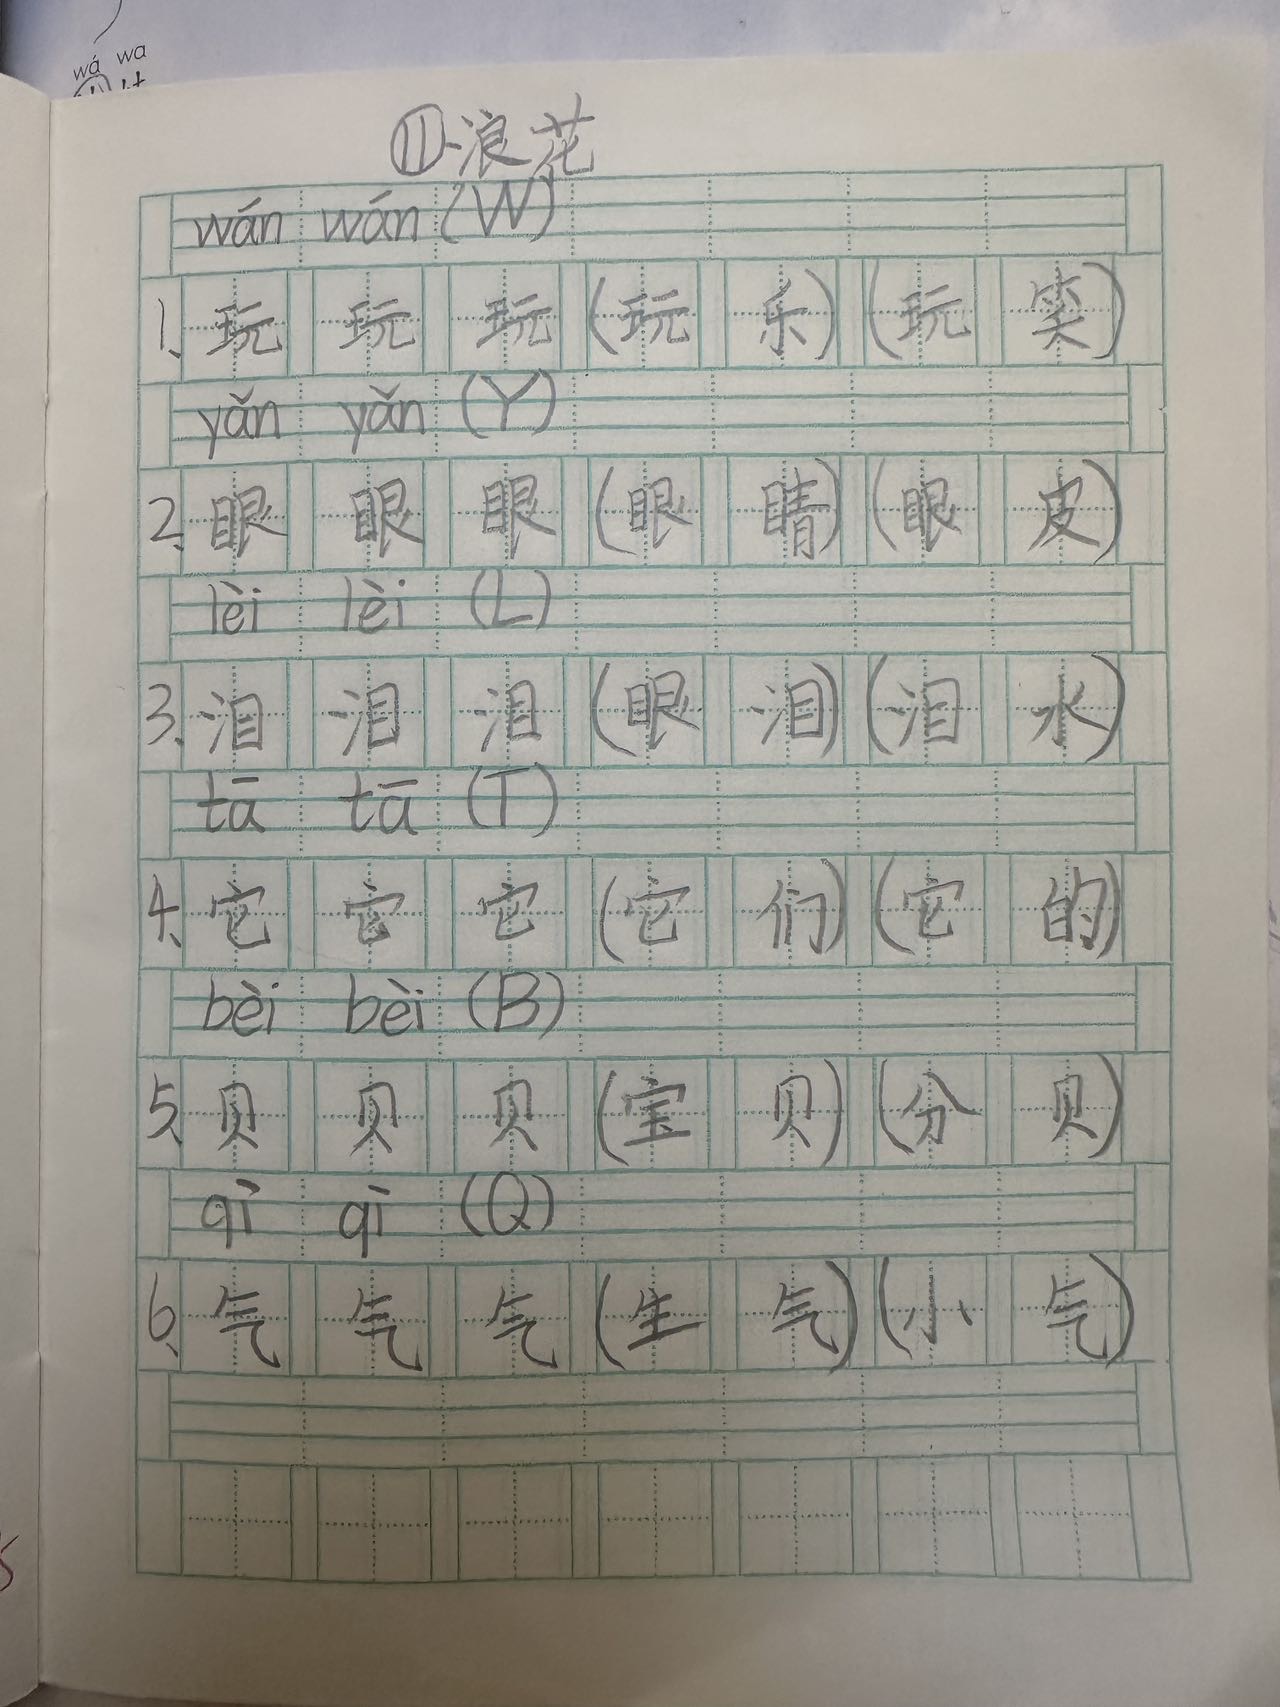 wá wa
⑪浪花
wán wán (W)
1、玩 玩 玩 (玩 乐) (玩 笑)
yǎn yǎn (Y)
2、眼 眼 眼 (眼 睛) (眼 皮)
lèi lèi (L)
3、泪 泪 泪 (眼 泪) (泪 水)
tā tā (T)
4、它 它 它 (它 们) (它 的)
bèi bèi (B)
5、贝 贝 贝 (宝 贝) (分 贝)
qì qì (Q)
6、气 气 气 (生 气) (小 气)